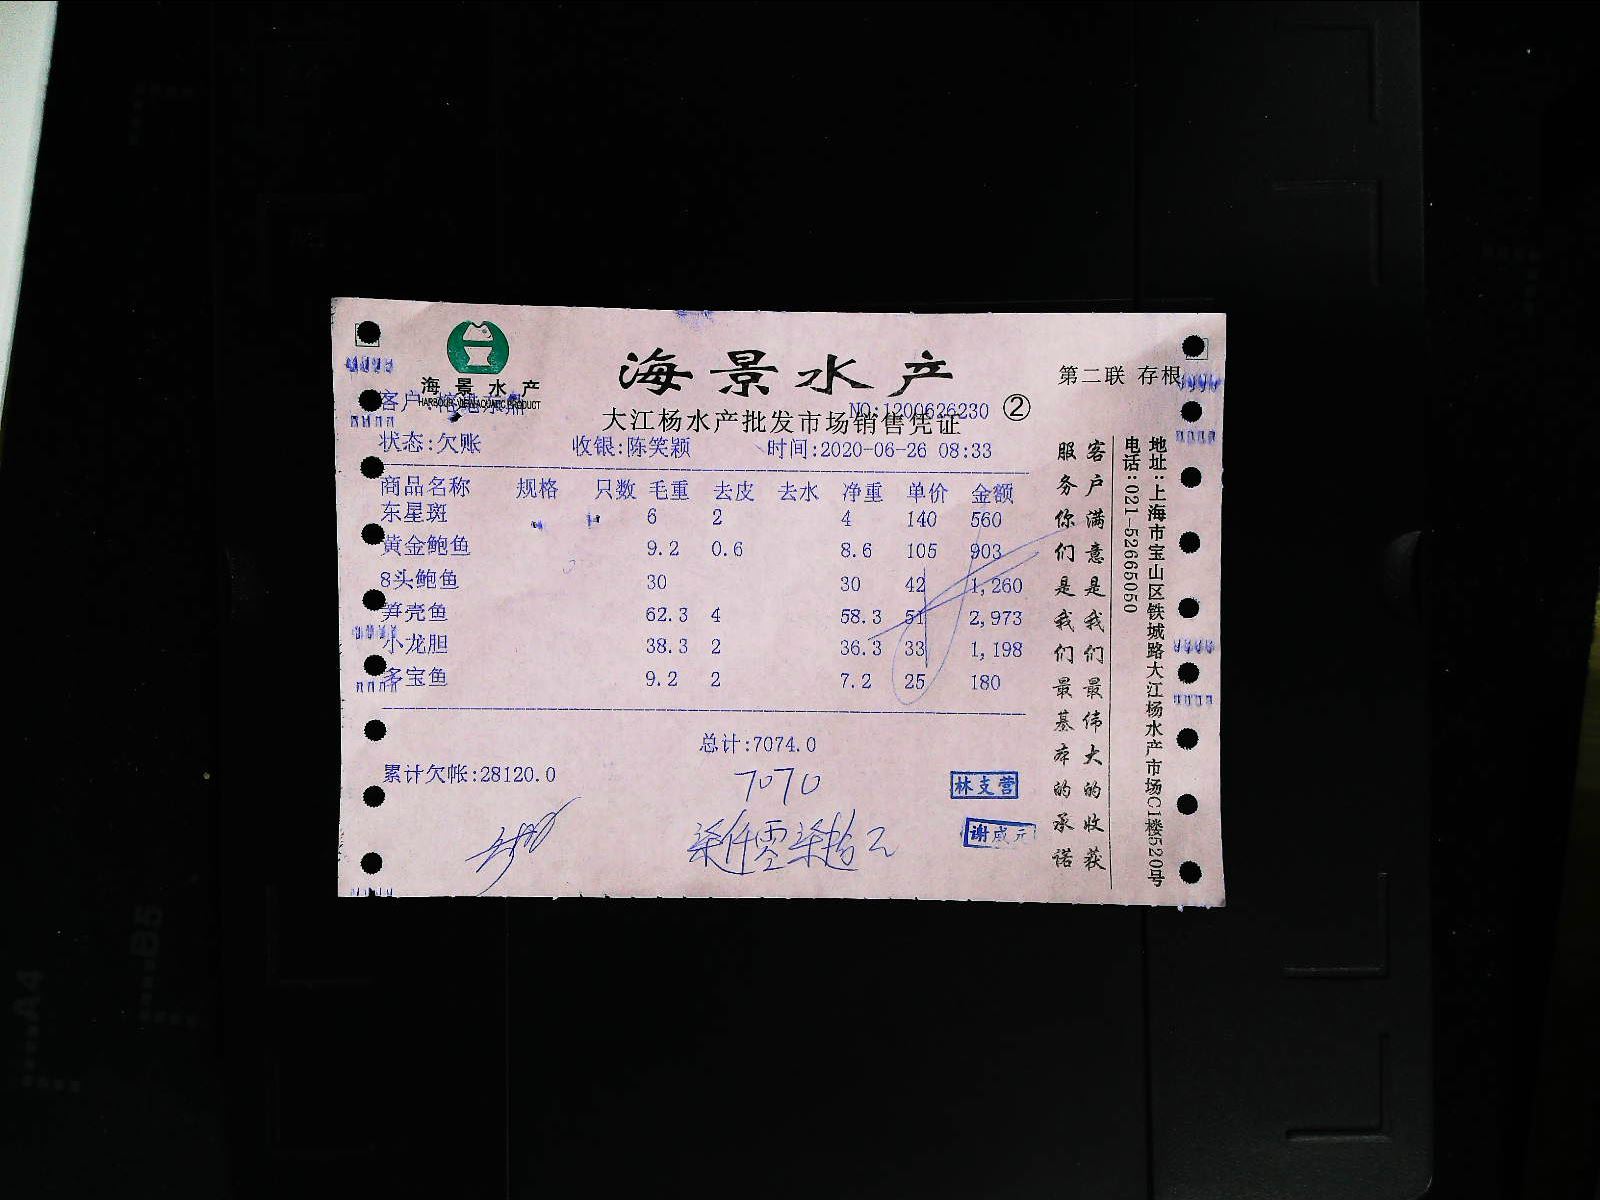 海景水产
HARBOUR VIEW AQUATIC PRODUCT
海景水产
第二联 存根
客户:
NO:1200626230 ②
大江杨水产批发市场销售凭证
状态:欠账 收银:陈笑颖 时间:2020-06-26 08:33
商品名称 规格 只数 毛重 去皮 去水 净重 单价 金额
东星斑 6 2 4 140 560
黄金鲍鱼 9.2 0.6 8.6 105 903
8头鲍鱼 30 30 42 1,260
笋壳鱼 62.3 4 58.3 51 2,973
小龙胆 38.3 2 36.3 33 1,198
多宝鱼 9.2 2 7.2 25 180
总计:7074.0
累计欠帐:28120.0
7070
柒仟零柒拾元
林支营
谢成元
客户满意是我们最伟大的收获
服务你们是我们最基本的承诺
地址:上海市宝山区铁城路大江杨水产市场C1楼520号
电话:021-52665050
A4
B5